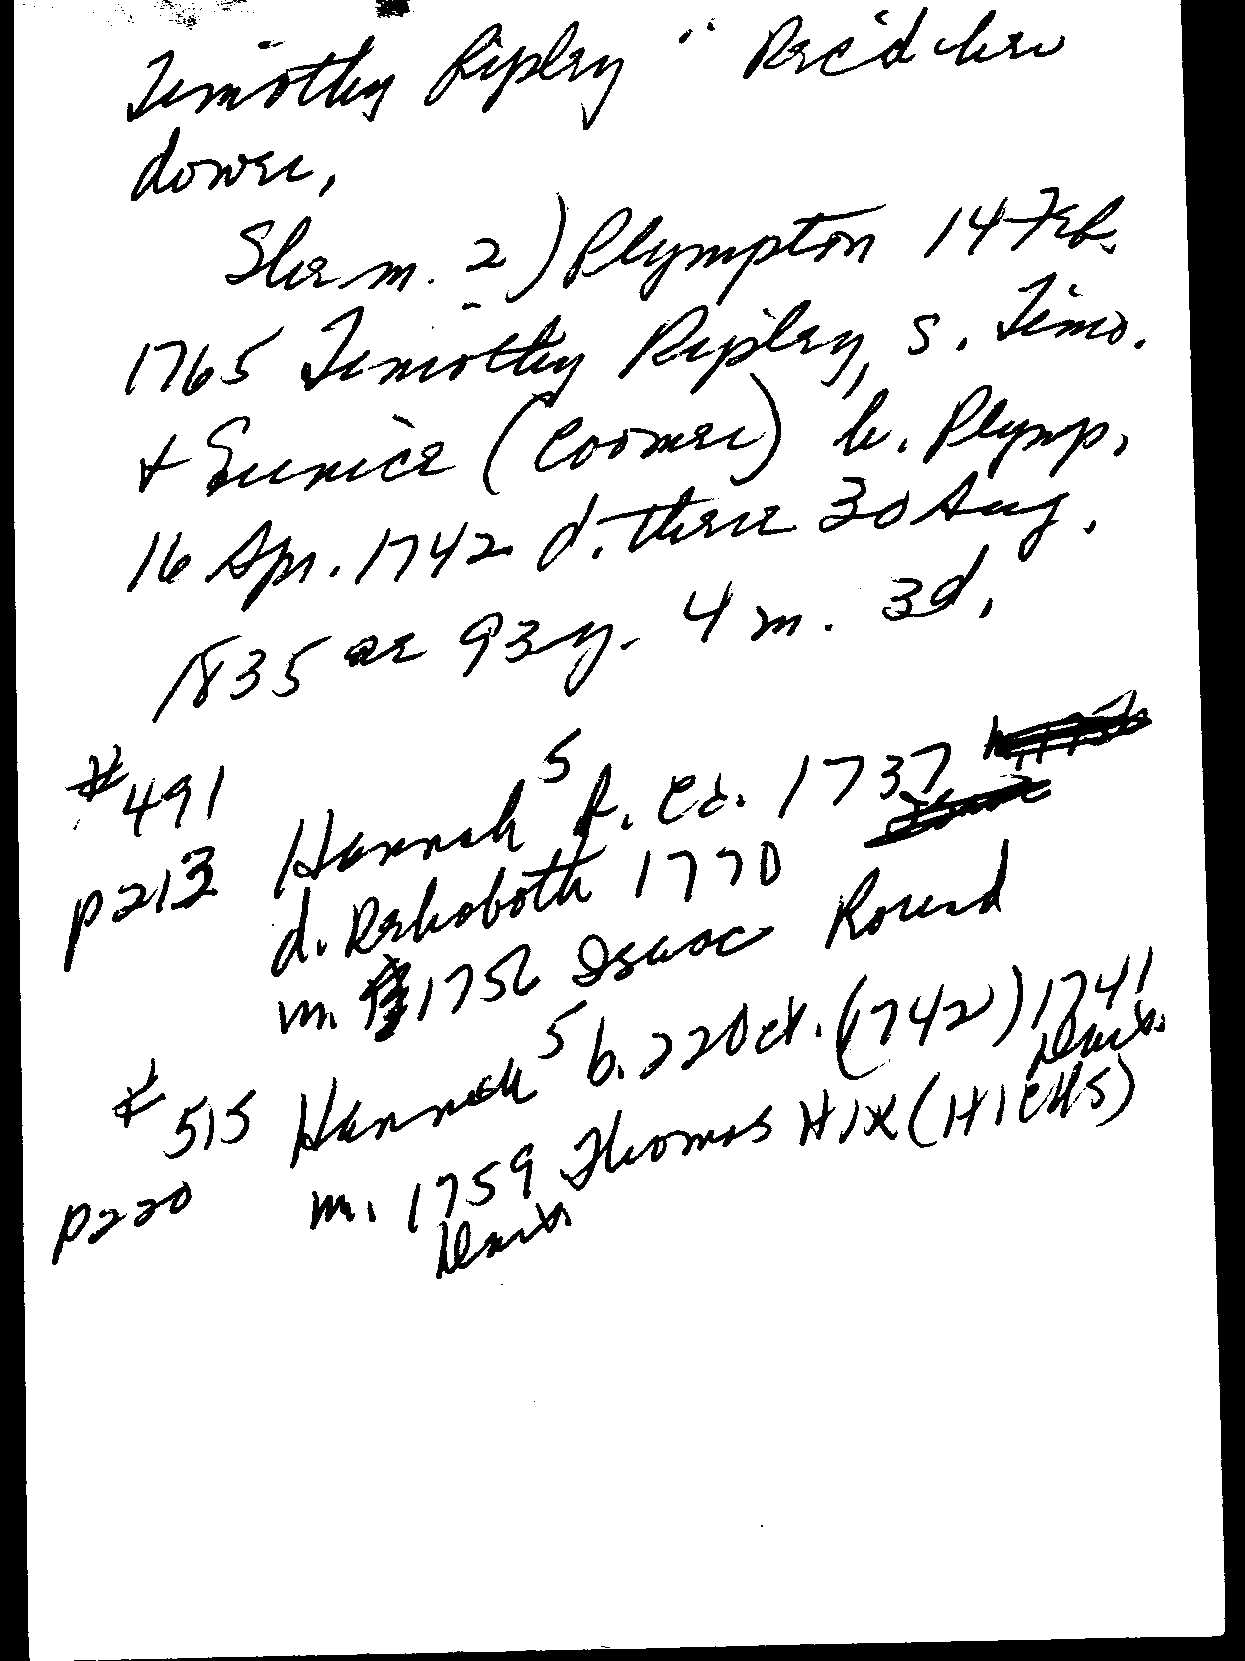 Timothy Ripley" Rec'd her
dower,
She m. 2) Plympton 14 Feb.
1765 Timothy Ripley, s. Timo.
+ Eunice (Coomer) b. Plymp.
16 Apr. 1742 d. there 30 Aug.
1835 ae 93y. 4 m. 3d.
#491 Hannah 5 b. ca. 1737
p213 d. Rehoboth 1770
m. 1756 Isaac Round
#515 Hannah 5 b. 22 Oct. (1742) 1741
p220 m. 1759 Thomas HIX (HICKS)